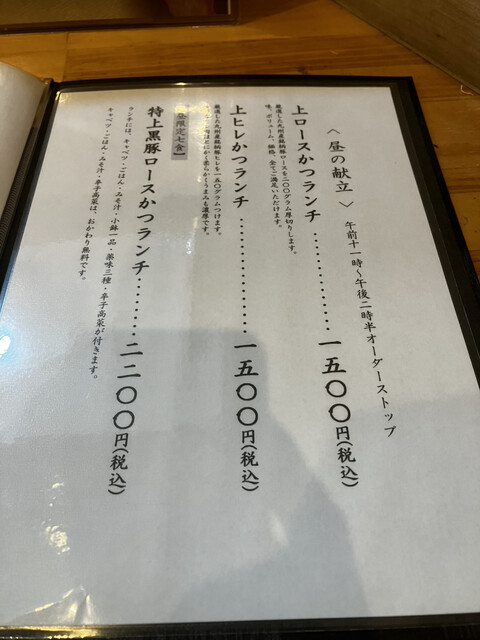 〈 昼の献立 〉 午前十一時〜午後二時半オーダーストップ
上ロースかつランチ………………一五〇〇円(税込)
厳選した九州産銘柄豚ロースを二〇〇グラム厚切りします。
味、ボリューム、価格、全てご満足いただけます。
上ヒレかつランチ………………一五〇〇円(税込)
厳選した九州産銘柄豚ヒレを一五〇グラムつけます。
とにかく柔らかくうまみも濃厚です。
限定七食】
特上黒豚ロースかつランチ………二二〇〇円(税込)
ランチには、キャベツ・ごはん・みそ汁・小鉢一品・薬味三種・辛子高菜が付きます。
キャベツ・ごはん・みそ汁・辛子高菜は、おかわり無料です。